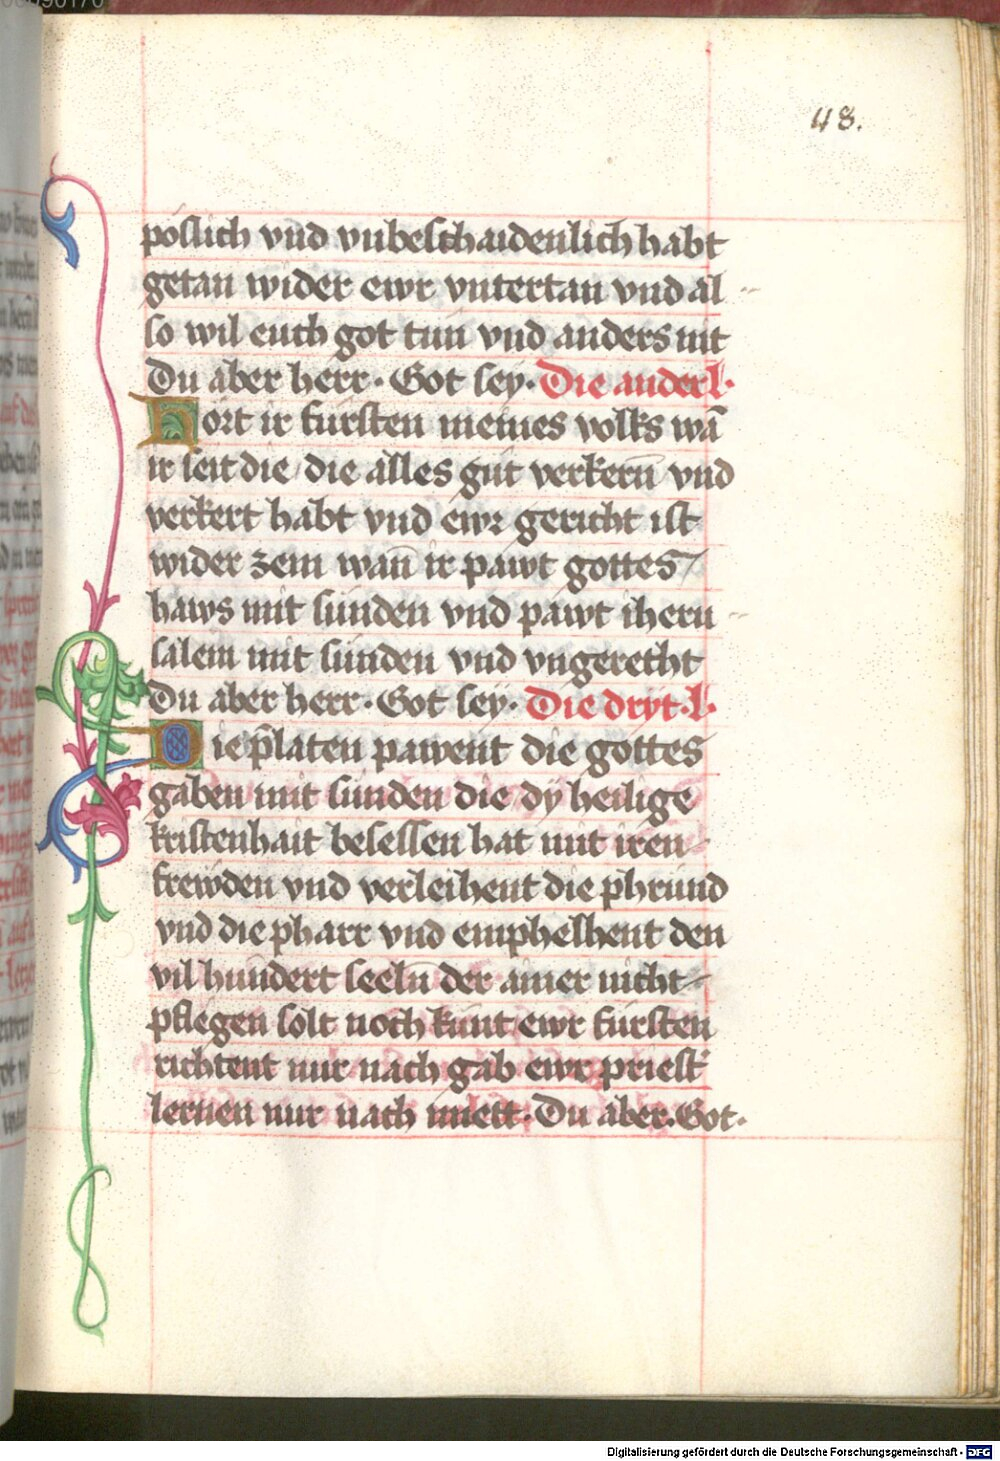 48.
pöslich vnd vnbeschaidenlich habt
getan wider ewr vntertan vnd al
so wil euch got tun vnd anders nit
Du aber herr · Got sey · Die ander l·
Hort ir fursten meines volks wan̄
ir seit die / die alles gut verkern̄ vnd
verkert habt vnd ewr gericht ist
wider zem wan̄ ir pawt gottes /
haws mit sunden vnd pawt iheru
salem mit sunden vnd vngerecht
Du aber herr · Got sey · Die dryt · l·
Die p̄laten pawent die gottes
gaben mit sunden die dy heilige
kristenhait besessen hat mit iren
frewden vnd verleihent die phrund
vnd die pharr vnd emphelhent den
vil hundert seeln der ainer nicht
pflegen solt noch kunt ewr fursten
richtent nur nach gab ewr priest̄
lernen nur nach miett · Du aber · Got ·
Digitalisierung gefördert durch die Deutsche Forschungsgemeinschaft - DFG